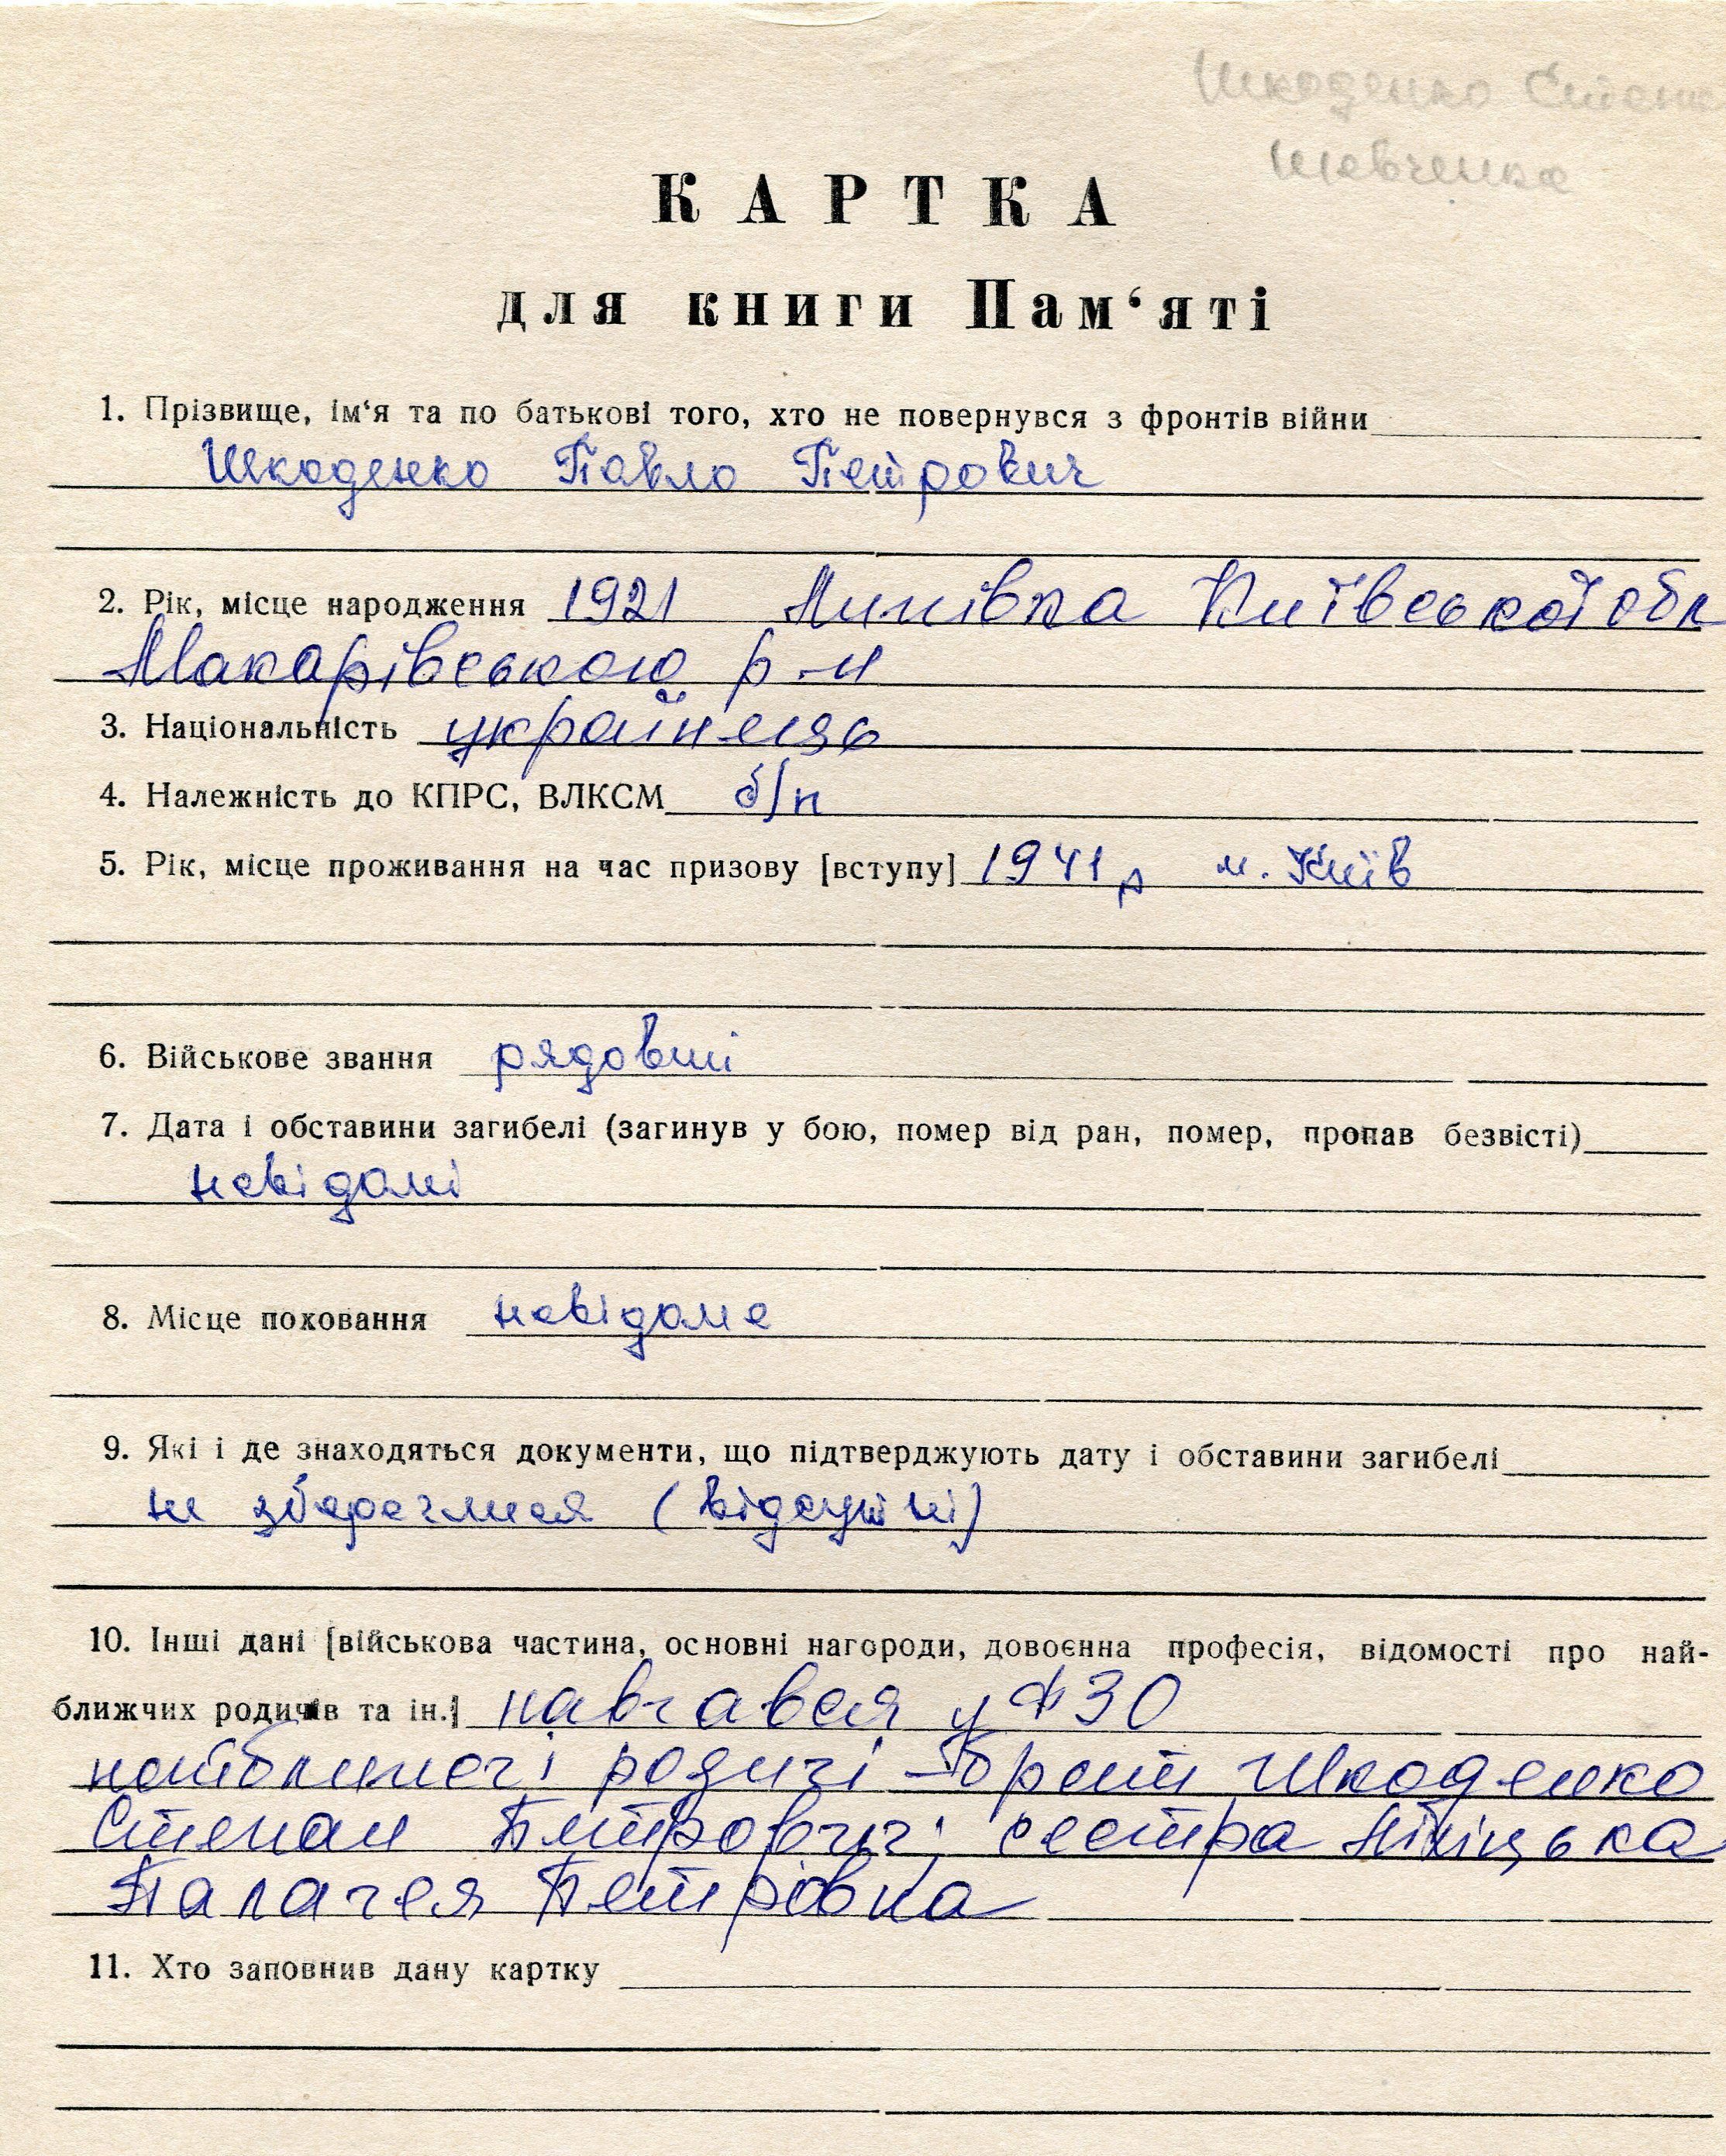 Шкоденко Степан
Шевченка
КАРТКА
для книги Пам‘яті
1. Прізвище, ім‘я та по батькові того, хто не повернувся з фронтів війни
Шкоденко Павло Петрович
2. Рік, місце народження 1921 Липівка Київської обл
Макарівського р-н
3. Національність українець
4. Належність до КПРС, ВЛКСМ б/п
5. Рік, місце проживання на час призову [вступу] 1941 р м. Київ
6. Військове звання рядовий
7. Дата і обставини загибелі (загинув у бою, помер від ран, помер, пропав безвісті)
невідомі
8. Місце поховання невідоме
9. Які і де знаходяться документи, що підтверджують дату і обставини загибелі
не збереглися (відсутні)
10. Інші дані [військова частина, основні нагороди, довоєнна професія, відомості про най-
ближчих родичів та ін.] навчався у ФЗО
найближчі родичі - брат Шкоденко
Степан Петрович; сестра
Палагея Петрівна
11. Хто заповнив дану картку